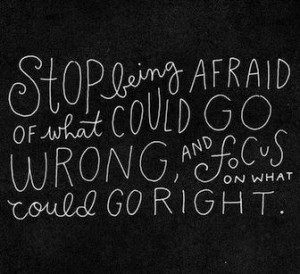 STOP being AFRAID
OF what COULD GO
WRONG, AND focus
ON WHAT
could GO RIGHT.